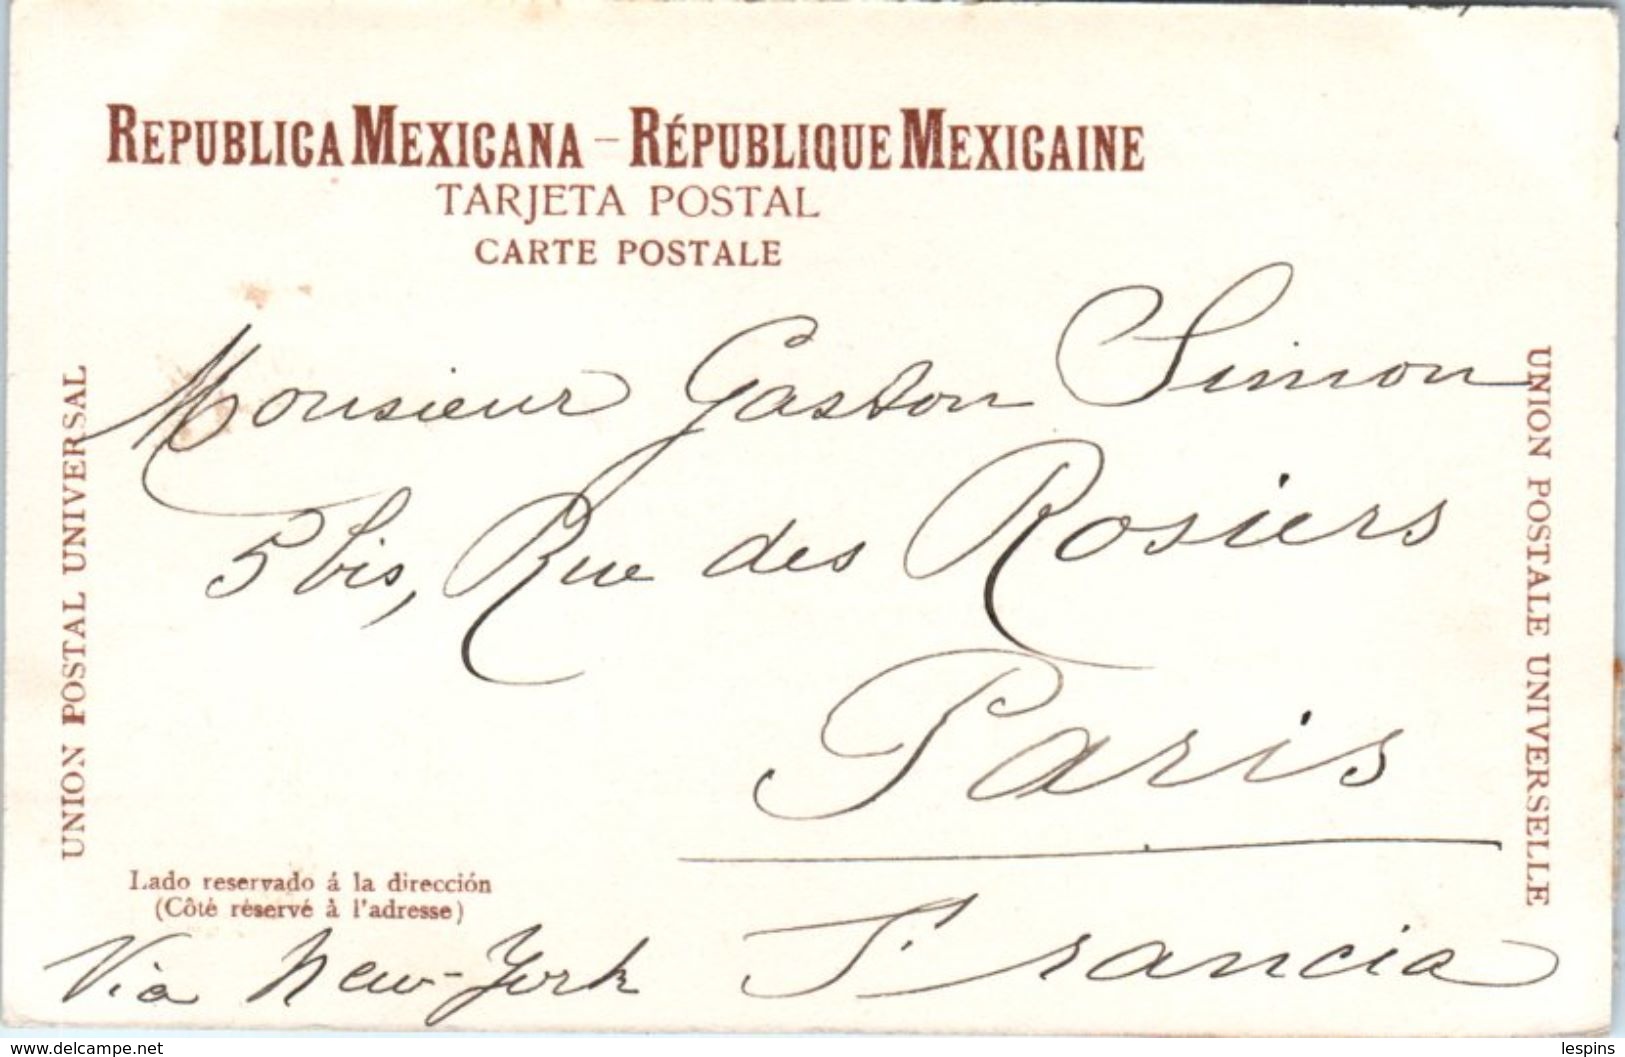 REPUBLICA MEXICANA – RÉPUBLIQUE MEXICAINE
TARJETA POSTAL
CARTE POSTALE
UNION POSTAL UNIVERSAL
UNION POSTALE UNIVERSELLE
Monsieur Gaston Simon
5 bis, Rue des Rosiers
Paris
Francia
Lado reservado á la dirección
(Côté réservé à l'adresse)
Via New-York
www.delcampe.net
lespins